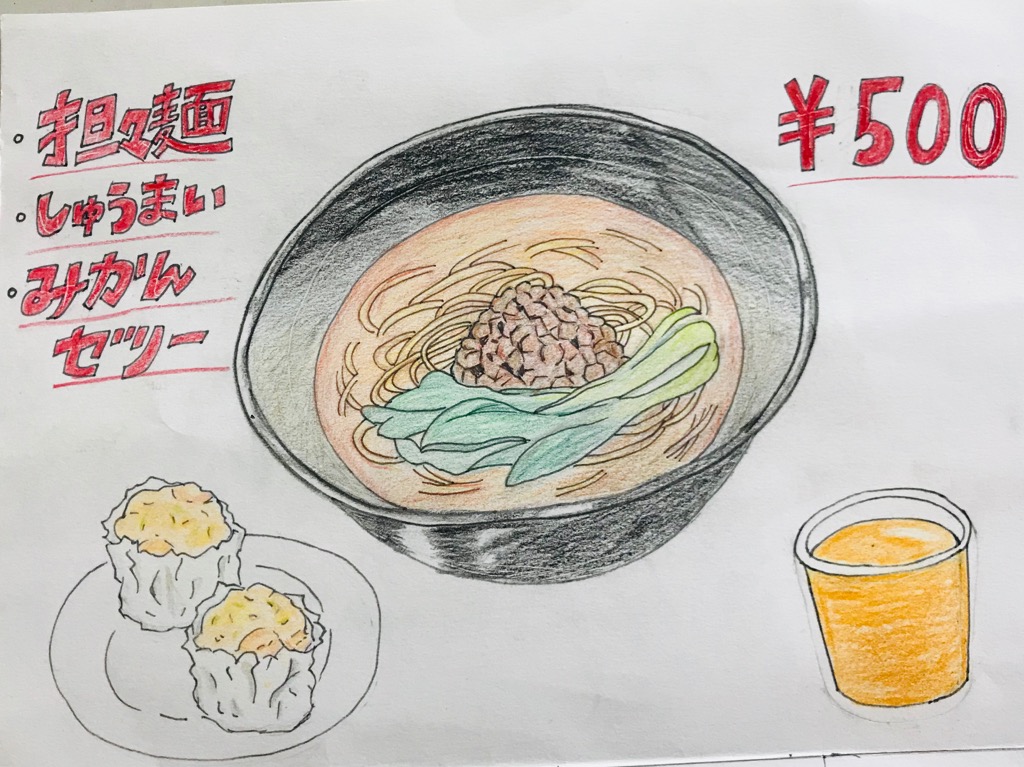 。担々麺
。しゅうまい
。みかん
ゼリー
¥500